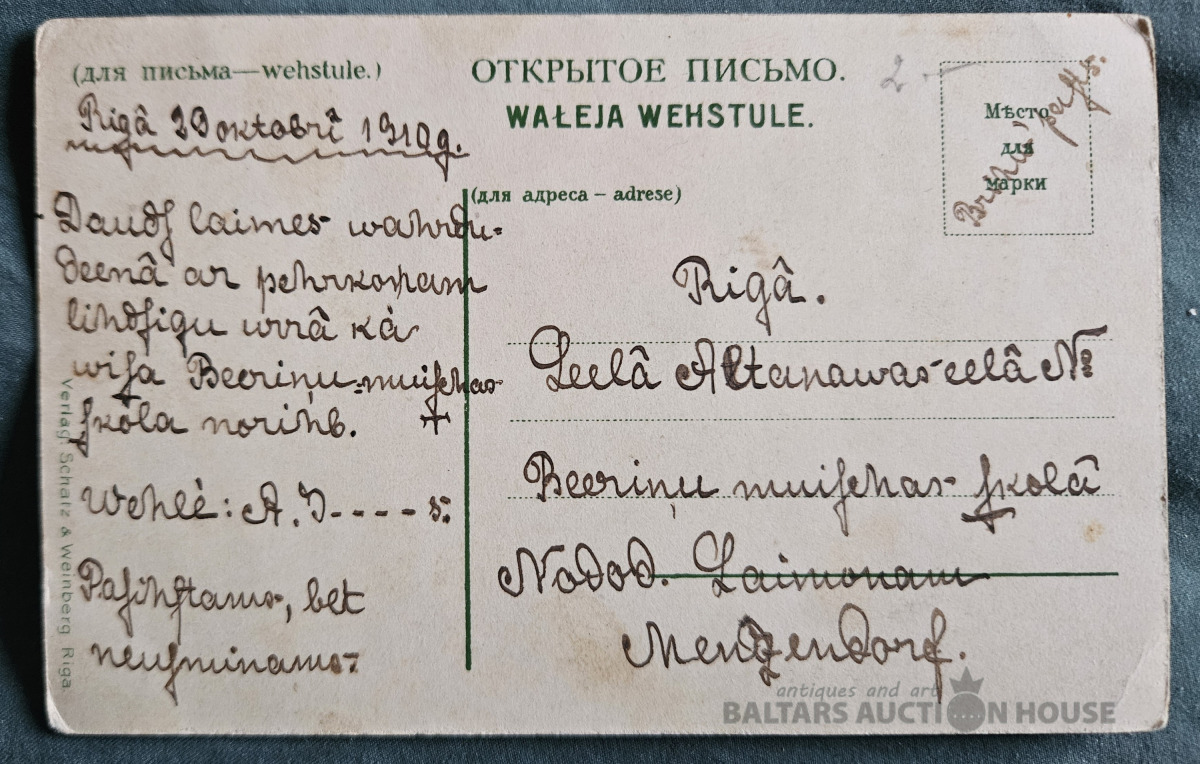 (для письма—wehstule.)
ОТКРЫТОЕ ПИСЬМО.
WAŁEJA WEHSTULE.
2.-
Мѣсто
для
марки
Brihw pasts.
Rigâ 29 oktobrî 1910g.
(для адреса – adrese)
Daudſ laimes wahrdu-
deenâ ar pehrkonam
lihdſigu urrâ kà
wiſa Beeriņu-muiſchas
ſkola norihb. +
Wehlè: A. J----s:
Paſihſtams, bet
neuſminams:
Rigâ.
Leelâ Altanawas-eelâ №
Beeriņu muiſchas- ſkolâ
Nodod. Laimonam
Mendzendorf.
Verlag. Schatz & Weinberg Riga
antiques and art
BALTARS AUCTION HOUSE